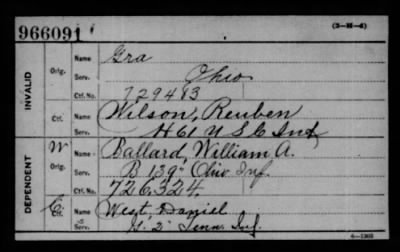 966091
(3—H—4)
INVALID
Orig. Name Gra
Serv. Ohio
Ctf. No. 729483
Ctf. Name Wilson, Reuben
Serv. H 61 U S C Inf
DEPENDENT
W Orig. Name Ballard, William A.
Serv. B 139" Ohio Inf.
726.324.
C Ctf. Name West, Daniel
S 2" Tenn. Inf.